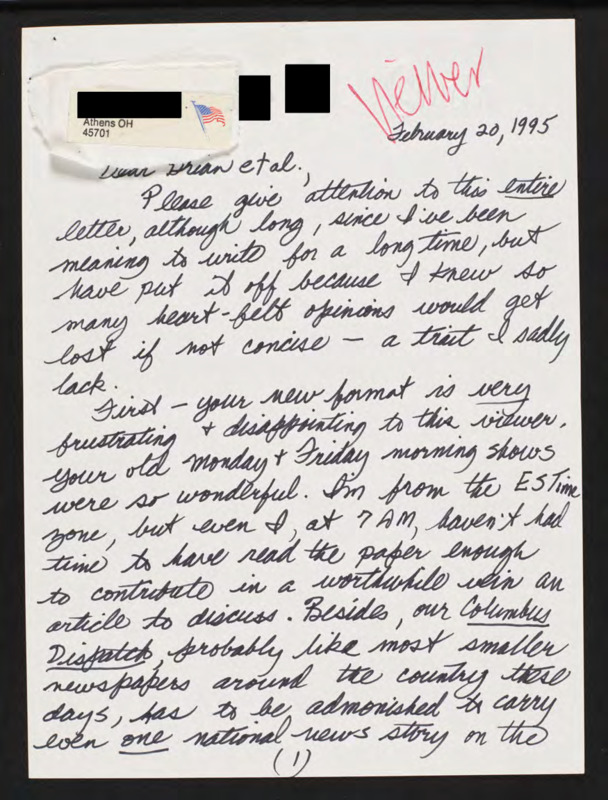 Viewer
Athens OH
45701
February 20, 1995
Dear Brian et al.,
Please give attention to this entire
letter, although long, since I've been
meaning to write for a long time, but
have put it off because I knew so
many heart-felt opinions would get
lost if not concise — a trait I sadly
lack.
First — your new format is very
frustrating + disappointing to this viewer.
Your old Monday + Friday morning shows
were so wonderful. I'm from the ESTime
zone, but even I, at 7 AM, haven't had
time to have read the paper enough
to contribute in a worthwhile vein an
article to discuss. Besides, our Columbus
Dispatch, probably like most smaller
newspapers around the country these
days, has to be admonished to carry
even one national news story on the
(1)